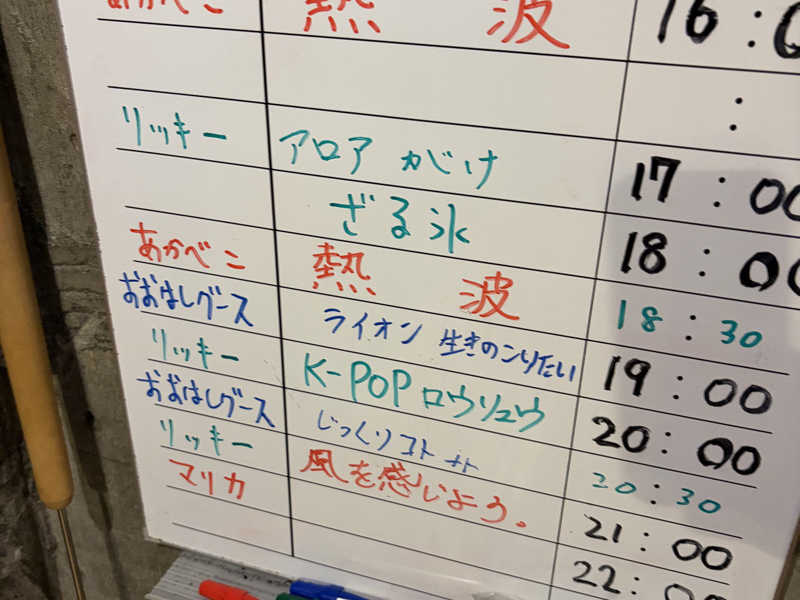 あかべこ 熱 波 16:0
:
リッキー アロア 17:00
ざる氷 18:00
あかべこ 熱 波 18:30
おおはしグース ライオン 生きのこりたい 19:00
リッキー K-POPロウリュウ 20:00
おおはしグース じっくりコト 20:30
リッキー 風を感じよう。 21:00
マリカ 22:00